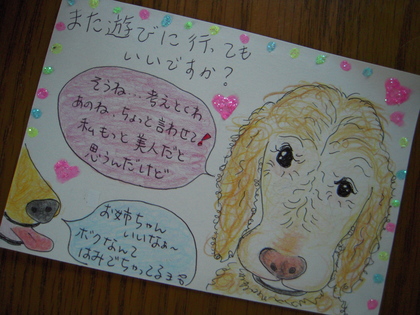 また遊びに行っても
いいですか？
そうね…考えとくわ
あのね、ちょっと言わせて！
私もっと美人だと
思うんだけど
お姉ちゃん
いいなぁ～
ボクなんて
はみでちゃってるョ